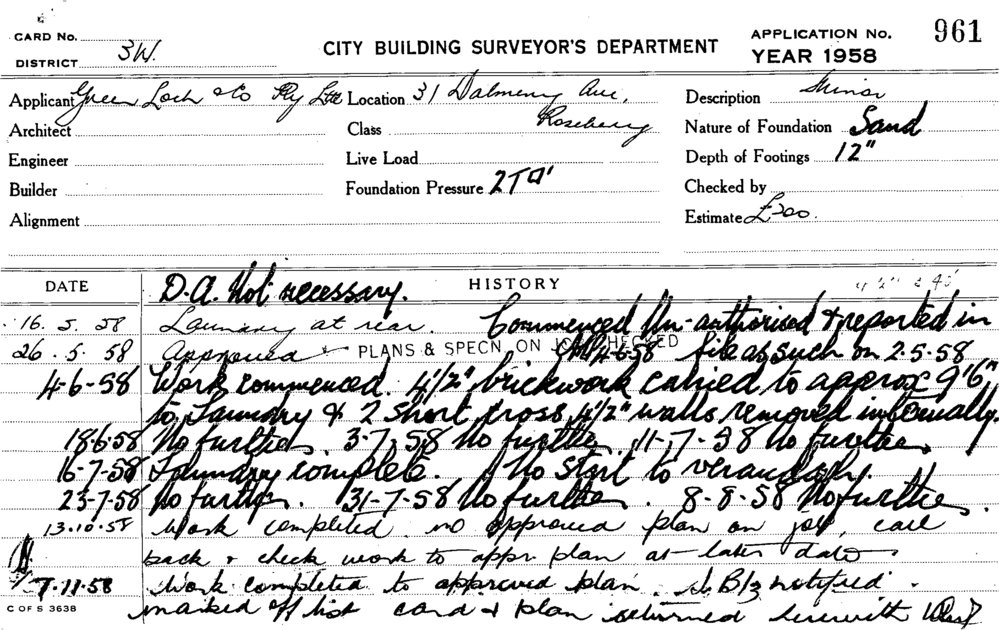 CARD No.
DISTRICT 3W.
CITY BUILDING SURVEYOR'S DEPARTMENT
APPLICATION No. 961
YEAR 1958
Applicant Green Loch & Co Pty Ltd Location 31 Dalmeny Ave, Description Minor
Architect Class Rosebery Nature of Foundation Sand
Engineer Live Load Depth of Footings 12"
Builder Foundation Pressure 2T Checked by
Alignment Estimate £300.
DATE D.A. Not necessary. HISTORY
16. 5. 58 Laundry at rear. Commenced Un-authorised & reported in
26. 5. 58 Approved PLANS & SPECN ON JOB CHECKED 4-6-58 file as such on 2.5.58
4-6-58 Work commenced. 4½" brickwork carried to approx 9'6"
to Laundry & 2 short cross 4½" walls removed internally.
18-6-58 No further. 3-7-58 No further. 11-7-58 No further.
16-7-58 Laundry complete. No start to verandah.
23-7-58 No further. 31-7-58 No further. 8-8-58 No further.
13.10.58 Work completed no approved plan on job, call
back & check work to appr. plan at later date.
7-11-58 Work completed to approved plan notified.
marked off list card & plan returned herewith
C OF S 3638